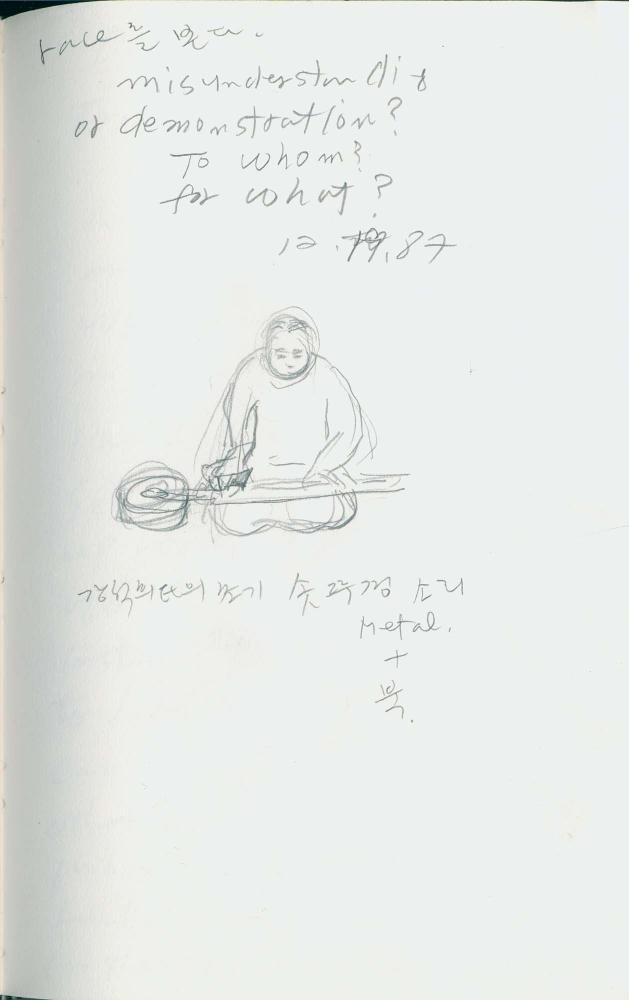 race를 본다.
misunderstandig
or demonstration?
To whom?
for what?
12.19.87
솟뚜껑 소리
Metal.
+
북.